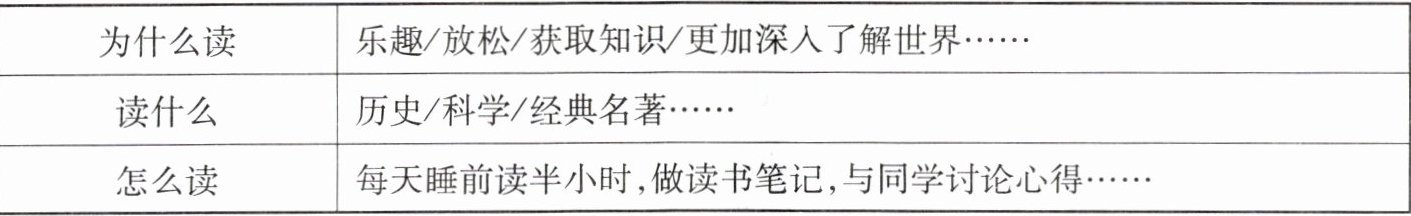 为什么读 乐趣/放松/获取知识/更加深入了解世界……
读什么 历史/科学/经典名著……
怎么读 每天睡前读半小时,做读书笔记,与同学讨论心得……